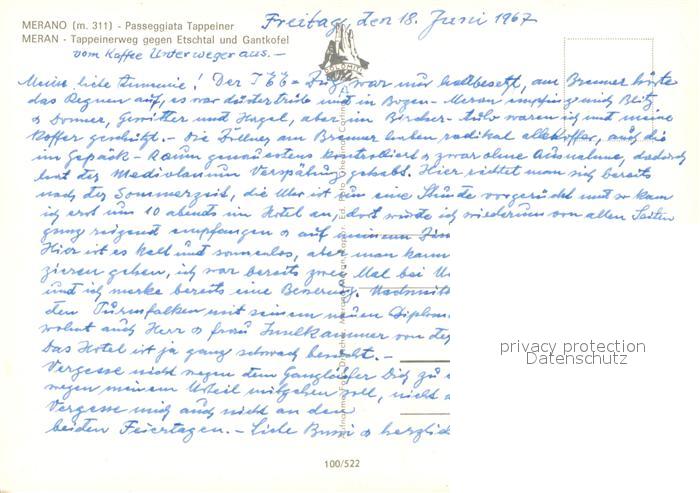 MERANO (m. 311) - Passeggiata Tappeiner
MERAN - Tappeinerweg gegen Etschtal und Gantkofel
vom Kaffee Unterweger aus. -
Freitag, den 18. Juni 1967
DOLOMITI
Meine liebe ! Der war nur halbbesetzt, am Brenner hörte
das Regnen auf, es war düster trübe und in Bozen - Meran empfing mich Blitz
& Donner, Gewitter und Hagel, aber im waren ich und meine
Koffer geschützt. - Die Zöllner am Brenner haben radikal alle Koffer, auch die
im Gepäck - Raum genauestens kontrolliert & zwar ohne Ausnahme, dadurch
hat der Mediolanum Verspätung gehabt. Hier richtet man sich bereits
nach der Sommerzeit, die Uhr ist um eine Stunde vorgerückt und so kam
ich erst um 10 abends im Hotel an, dort wurde ich wiederum von allen Seiten
ganz reizend empfangen & auf meinem
Hier ist es kalt und sonnenlos, aber man kann
zieren gehen, ich war bereits zwei Mal bei
und ich merke bereits eine Besserung.
den Turmfalken mit seinem neuen
wohnt auch Herr & Frau Inselkammer von
Das Hotel ist ja ganz schwach besucht. -
Vergesse nicht wegen dem Dich zu
wegen meinem Urteil mitgehen soll, nicht
Vergesse mich auch nicht an den
beiden Feiertagen. - Liebe Bussi & herzlich
privacy protection
Datenschutz
100/522